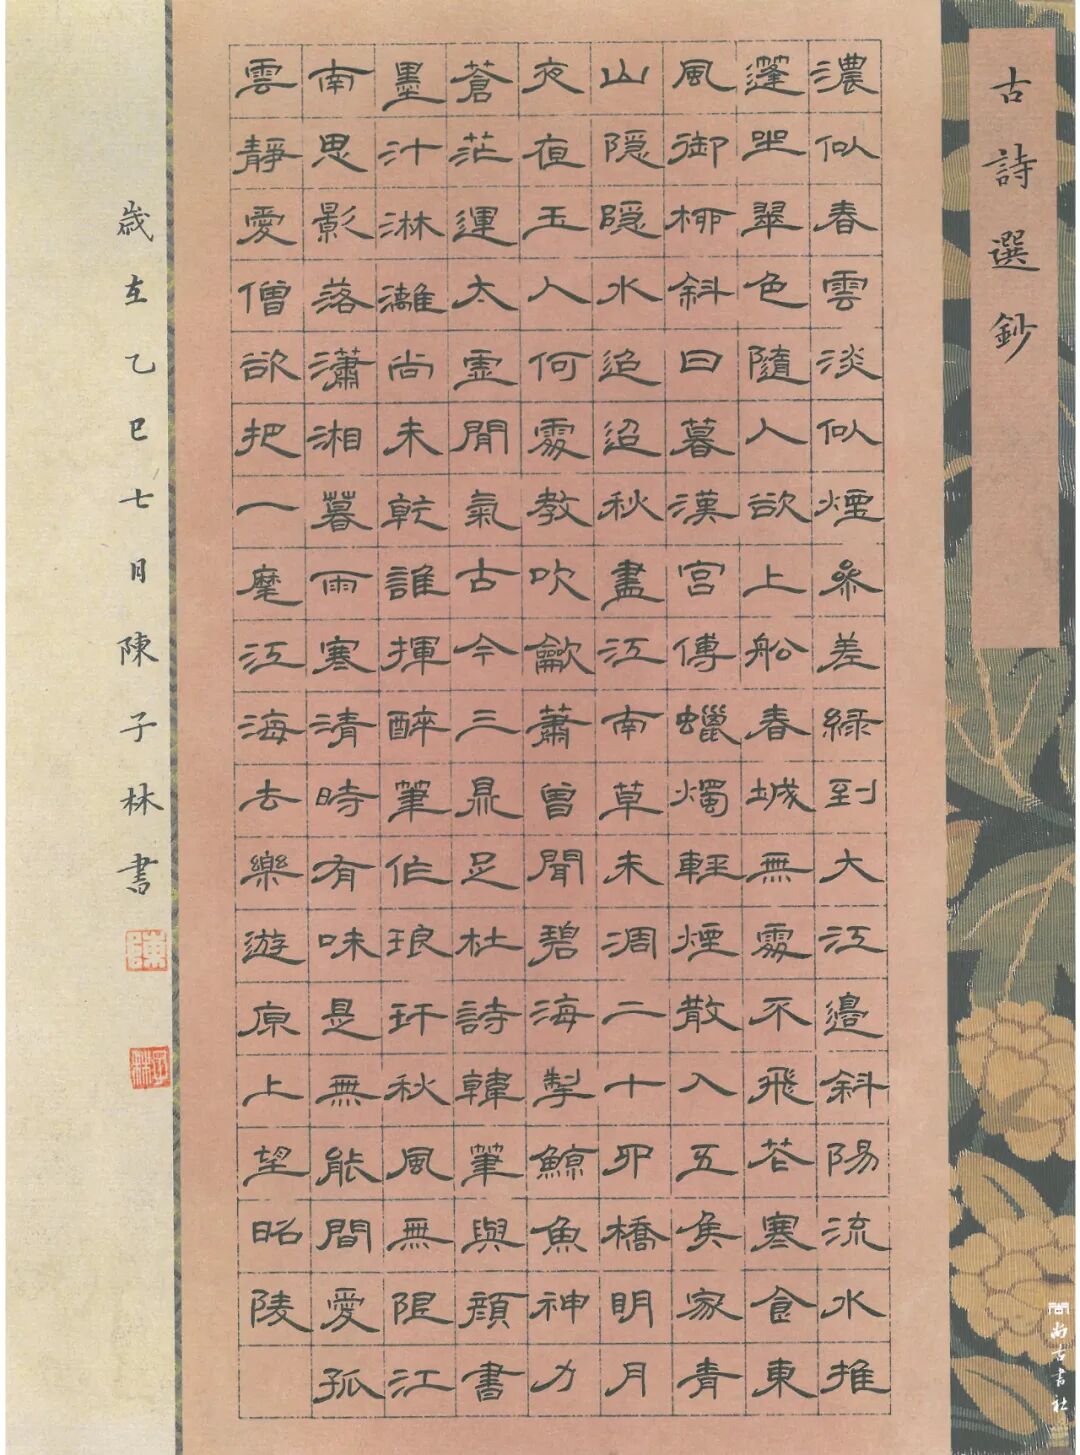 古詩選鈔
濃似春雲淡似煙參差綠到大江邊斜陽流水推
篷坐翠色隨人欲上船春城無處不飛花寒食東
風御柳斜日暮漢宮傳蠟燭輕煙散入五侯家青
山隱隱水迢迢秋盡江南草未凋二十四橋明月
夜夜玉人何處教吹龡蕭曾聞碧海掣鯨魚神力
蒼茫運太虛閒氣古今三鼎足杜詩韓筆與顏書
墨汁淋漓尚未乾誰揮醉筆作琅玕秋風無限江
南思影落瀟湘暮雨寒清時有味是無能間愛孤
雲靜愛僧欲把一麾江海去樂遊原上望昭陵
歲在乙巳七月陳子林書
子林
尚古書社